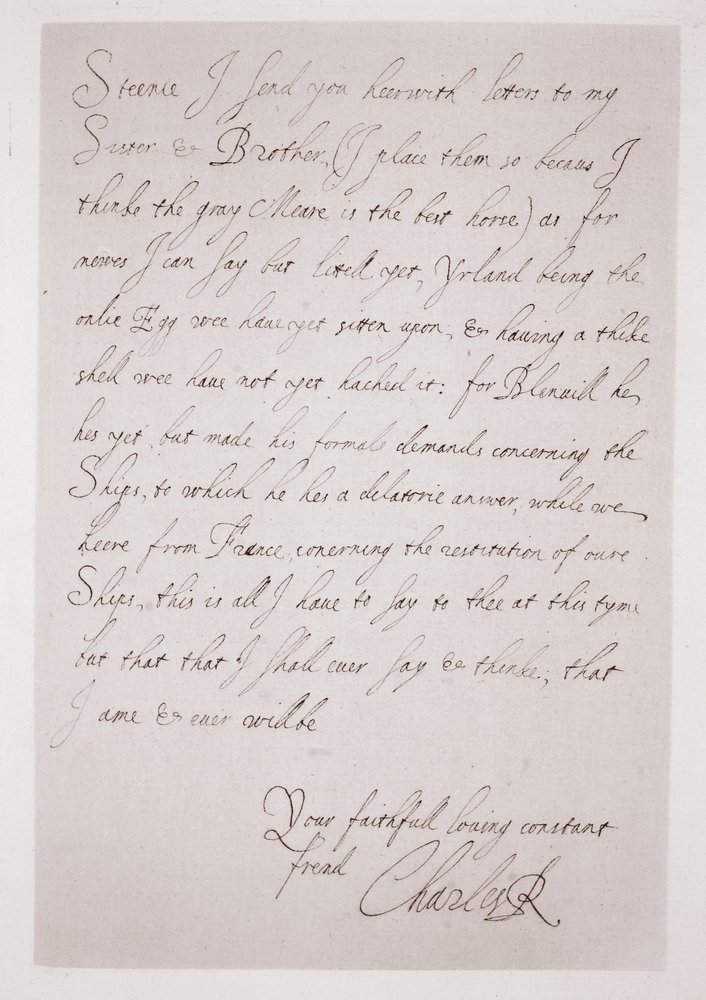 Steenie I send you heerwith letters to my
Sister & Brother, (I place them so becaus I
thinke the gray Meare is the best horse) as for
newes I can say but litell yet, Yrland being the
onlie Egg wee have yet sitten upon, & having a thike
shell wee have not yet hached it: for Blenvill he
hes yet but made his formale demands concerning the
Ships, to which he hes a delatorie answer, while we
heere from France, conerning the restitution of oure
Ships, this is all I have to say to thee at this tyme
but that that I shall ever say & thinke; that
I ame & ever willbe
Your faithfull loving constant
frend
Charles R